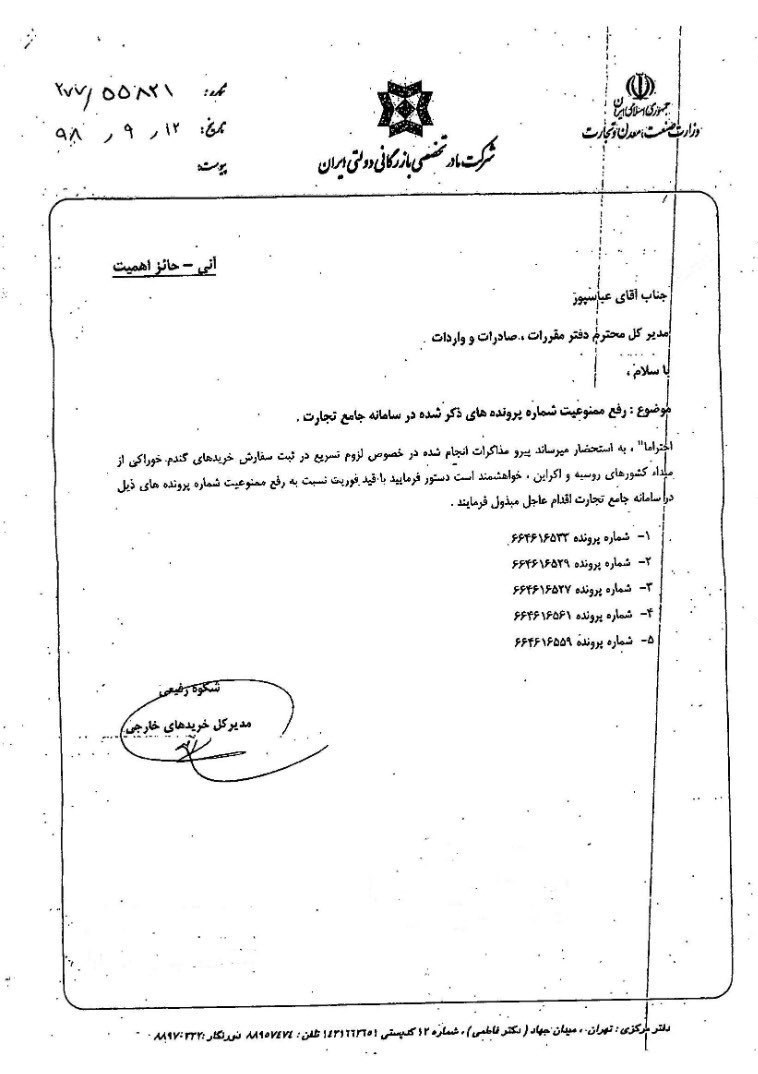 جمهوری اسلامی ایران
وزارت صنعت، معدن و تجارت
شرکت مادر تخصصی بازرگانی دولتی ایران
شماره: ۲۷۷/۵۵۸۲۱
تاریخ: ۹۸ / ۹ / ۱۲
پیوست:
آنی – حائز اهمیت
جناب آقای عباسپور
مدیر کل محترم دفتر مقررات ، صادرات و واردات
با سلام ،
موضوع : رفع ممنوعیت شماره پرونده های ذکر شده در سامانه جامع تجارت .
احتراما" ، به استحضار میرساند پیرو مذاکرات انجام شده در خصوص لزوم تسریع در ثبت سفارش خریدهای گندم خوراکی از
مبداء کشورهای روسیه و اکراین ، خواهشمند است دستور فرمایید با قید فوریت نسبت به رفع ممنوعیت شماره پرونده های ذیل
در سامانه جامع تجارت اقدام عاجل مبذول فرمایند .
۱- شماره پرونده ۶۶۴۶۱۶۵۳۲
۲- شماره پرونده ۶۶۴۶۱۶۵۲۹
۳- شماره پرونده ۶۶۴۶۱۶۵۲۷
۴- شماره پرونده ۶۶۴۶۱۶۵۶۱
۵- شماره پرونده ۶۶۴۶۱۶۵۵۹
شکوه رفیعی
مدیرکل خریدهای خارجی
دفتر مرکزی : تهران ، میدان جهاد ( دکتر فاطمی ) ، شماره ۱۲ کدپستی ۱۴۳۱۶۶۳۶۵۱ تلفن : ۸۸۹۵۷۴۷۴ دورنگار : ۸۸۹۷۰۳۳۲